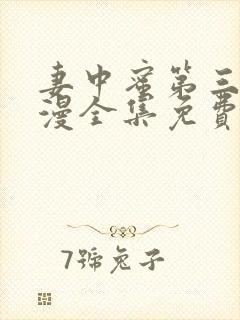 妻中蜜第三
漫全集免费
7號兔子